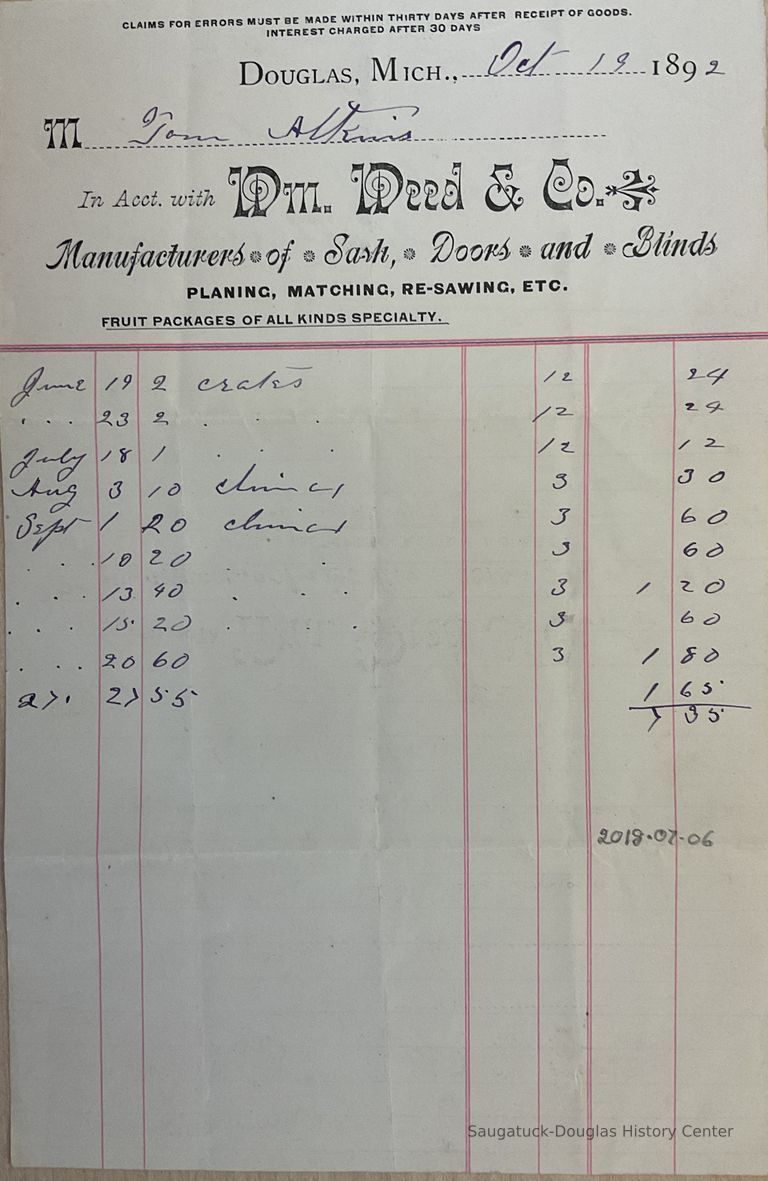 CLAIMS FOR ERRORS MUST BE MADE WITHIN THIRTY DAYS AFTER RECEIPT OF GOODS.
INTEREST CHARGED AFTER 30 DAYS
DOUGLAS, MICH., Oct 19 1892
M Tom Atkins
In Acct. with Wm. Weed & Co.
Manufacturers of Sash, Doors and Blinds
PLANING, MATCHING, RE-SAWING, ETC.
FRUIT PACKAGES OF ALL KINDS SPECIALTY.
June 19 2 crates 12 24
. . . 23 2 . . . 12 24
July 18 1 . . . 12 12
Aug 3 10 3 30
Sept 1 20 3 60
. . . 10 20 . . 3 60
. . . 13 40 . . . 3 1 20
. . . 15 20 . . . 3 60
. . . 20 60 3 1 80
27 55 1 65
7 35
2019.07.06
Saugatuck-Douglas History Center